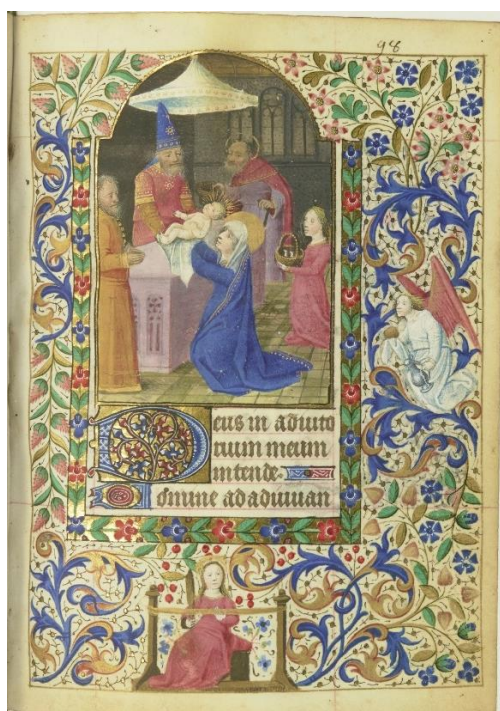 98
Deus in adiuto
rium meum
intende.
Domine ad adiuuan